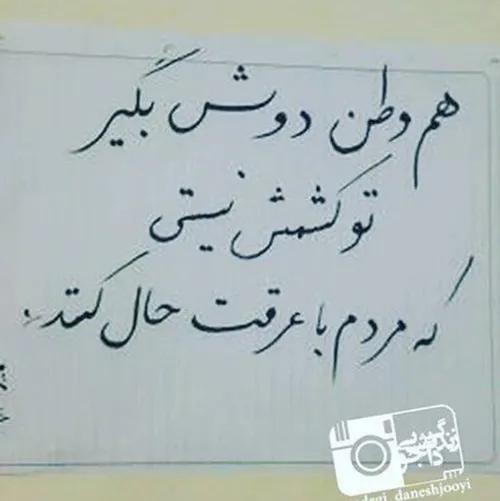 هم وطن دوش بگیر
تو کشمش نیستی
که مردم با عرقت حال کنند.
زندگی دانشجویی
degi_daneshjooyi